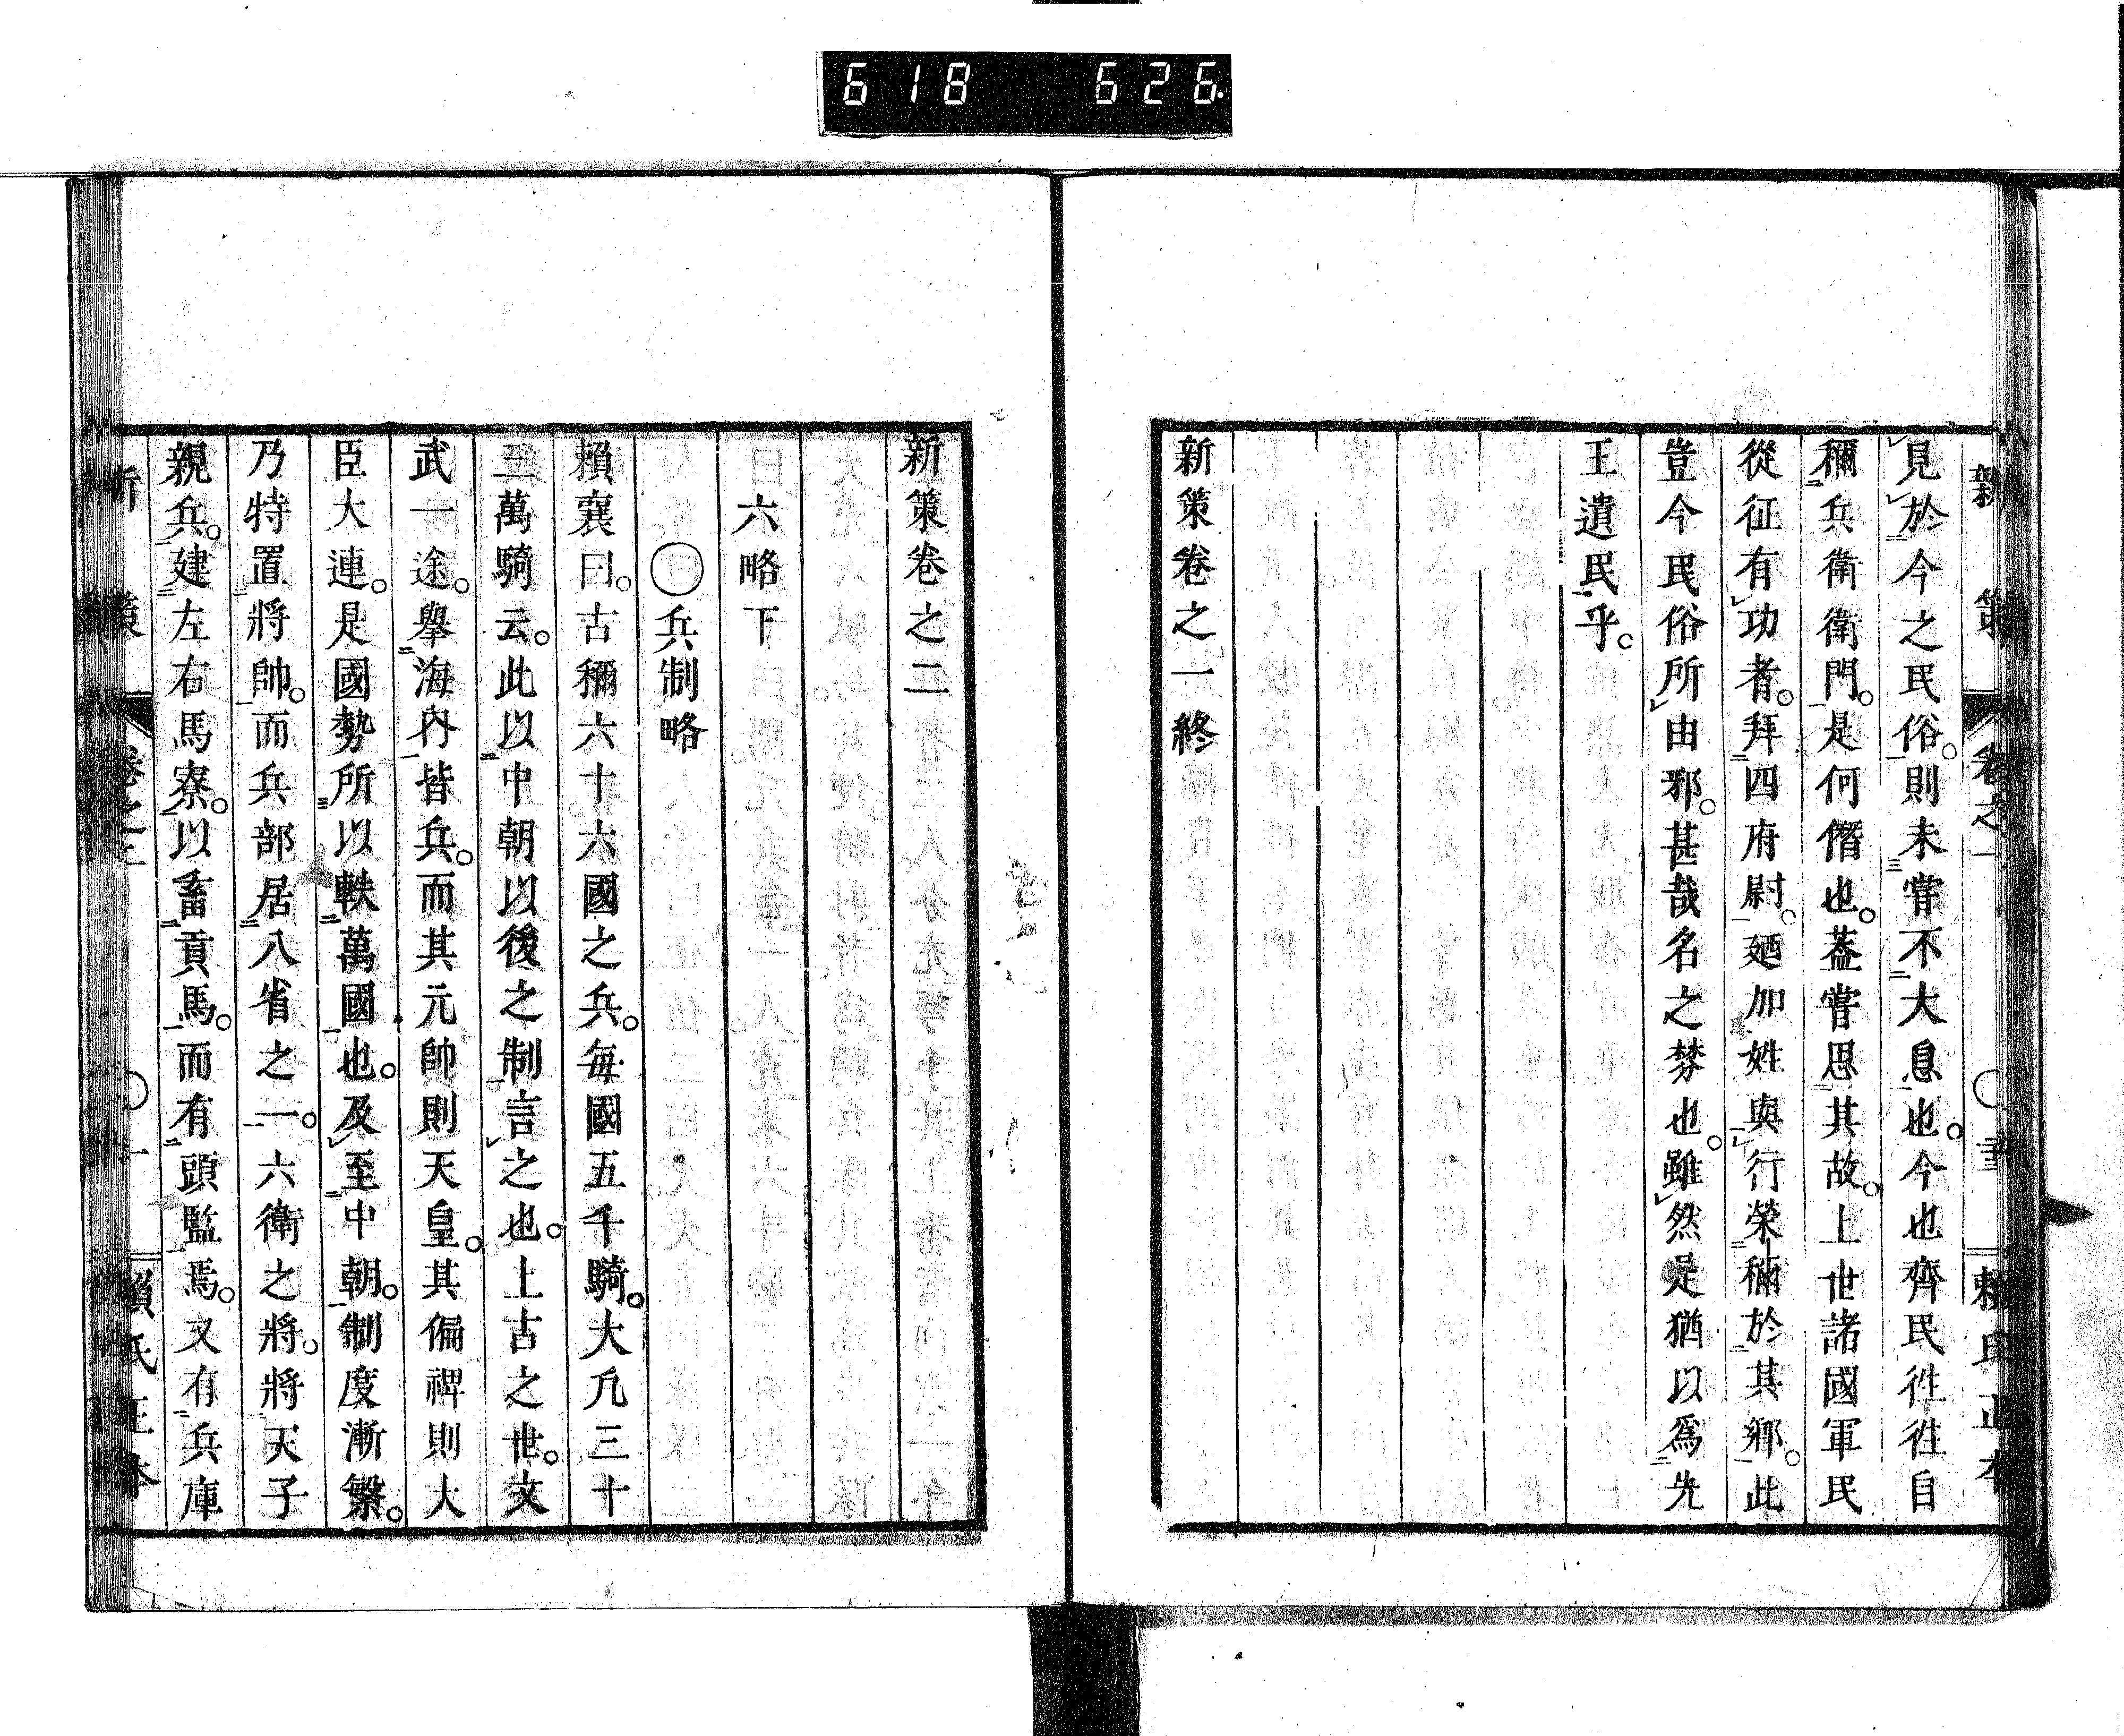 618 626
新策 卷之一 賴氏正本
見於今之民俗。則未嘗不大息也。今也齊民徃徃自
稱兵衛衛門。是何僭也。葢嘗思其故。上世諸國軍民
從征有功者。拜四府尉。廼加姓與行榮稱於其鄉。此
豈今民俗所由邪。甚哉名之棼也。雖然是猶以爲先
王遺民乎。
新策卷之一終
新策卷之二
六略下
○兵制略
賴襄曰。古稱六十六國之兵。每國五千騎。大凡三十
三萬騎云。此以中朝以後之制言之也。上古之世。文
武一途。舉海內皆兵。而其元帥則天皇。其偏裨則大
臣大連。是國勢所以軼萬國也。及至中朝。制度漸繁。
乃特置將帥。而兵部居八省之一。六衛之將。將天子
親兵。建左右馬寮。以畜貢馬。而有頭監焉。又有兵庫
新策 卷之二 ○一 賴氏正本